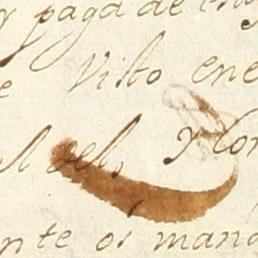 y paga de
e Visto ene
l dells y con
nte os mand